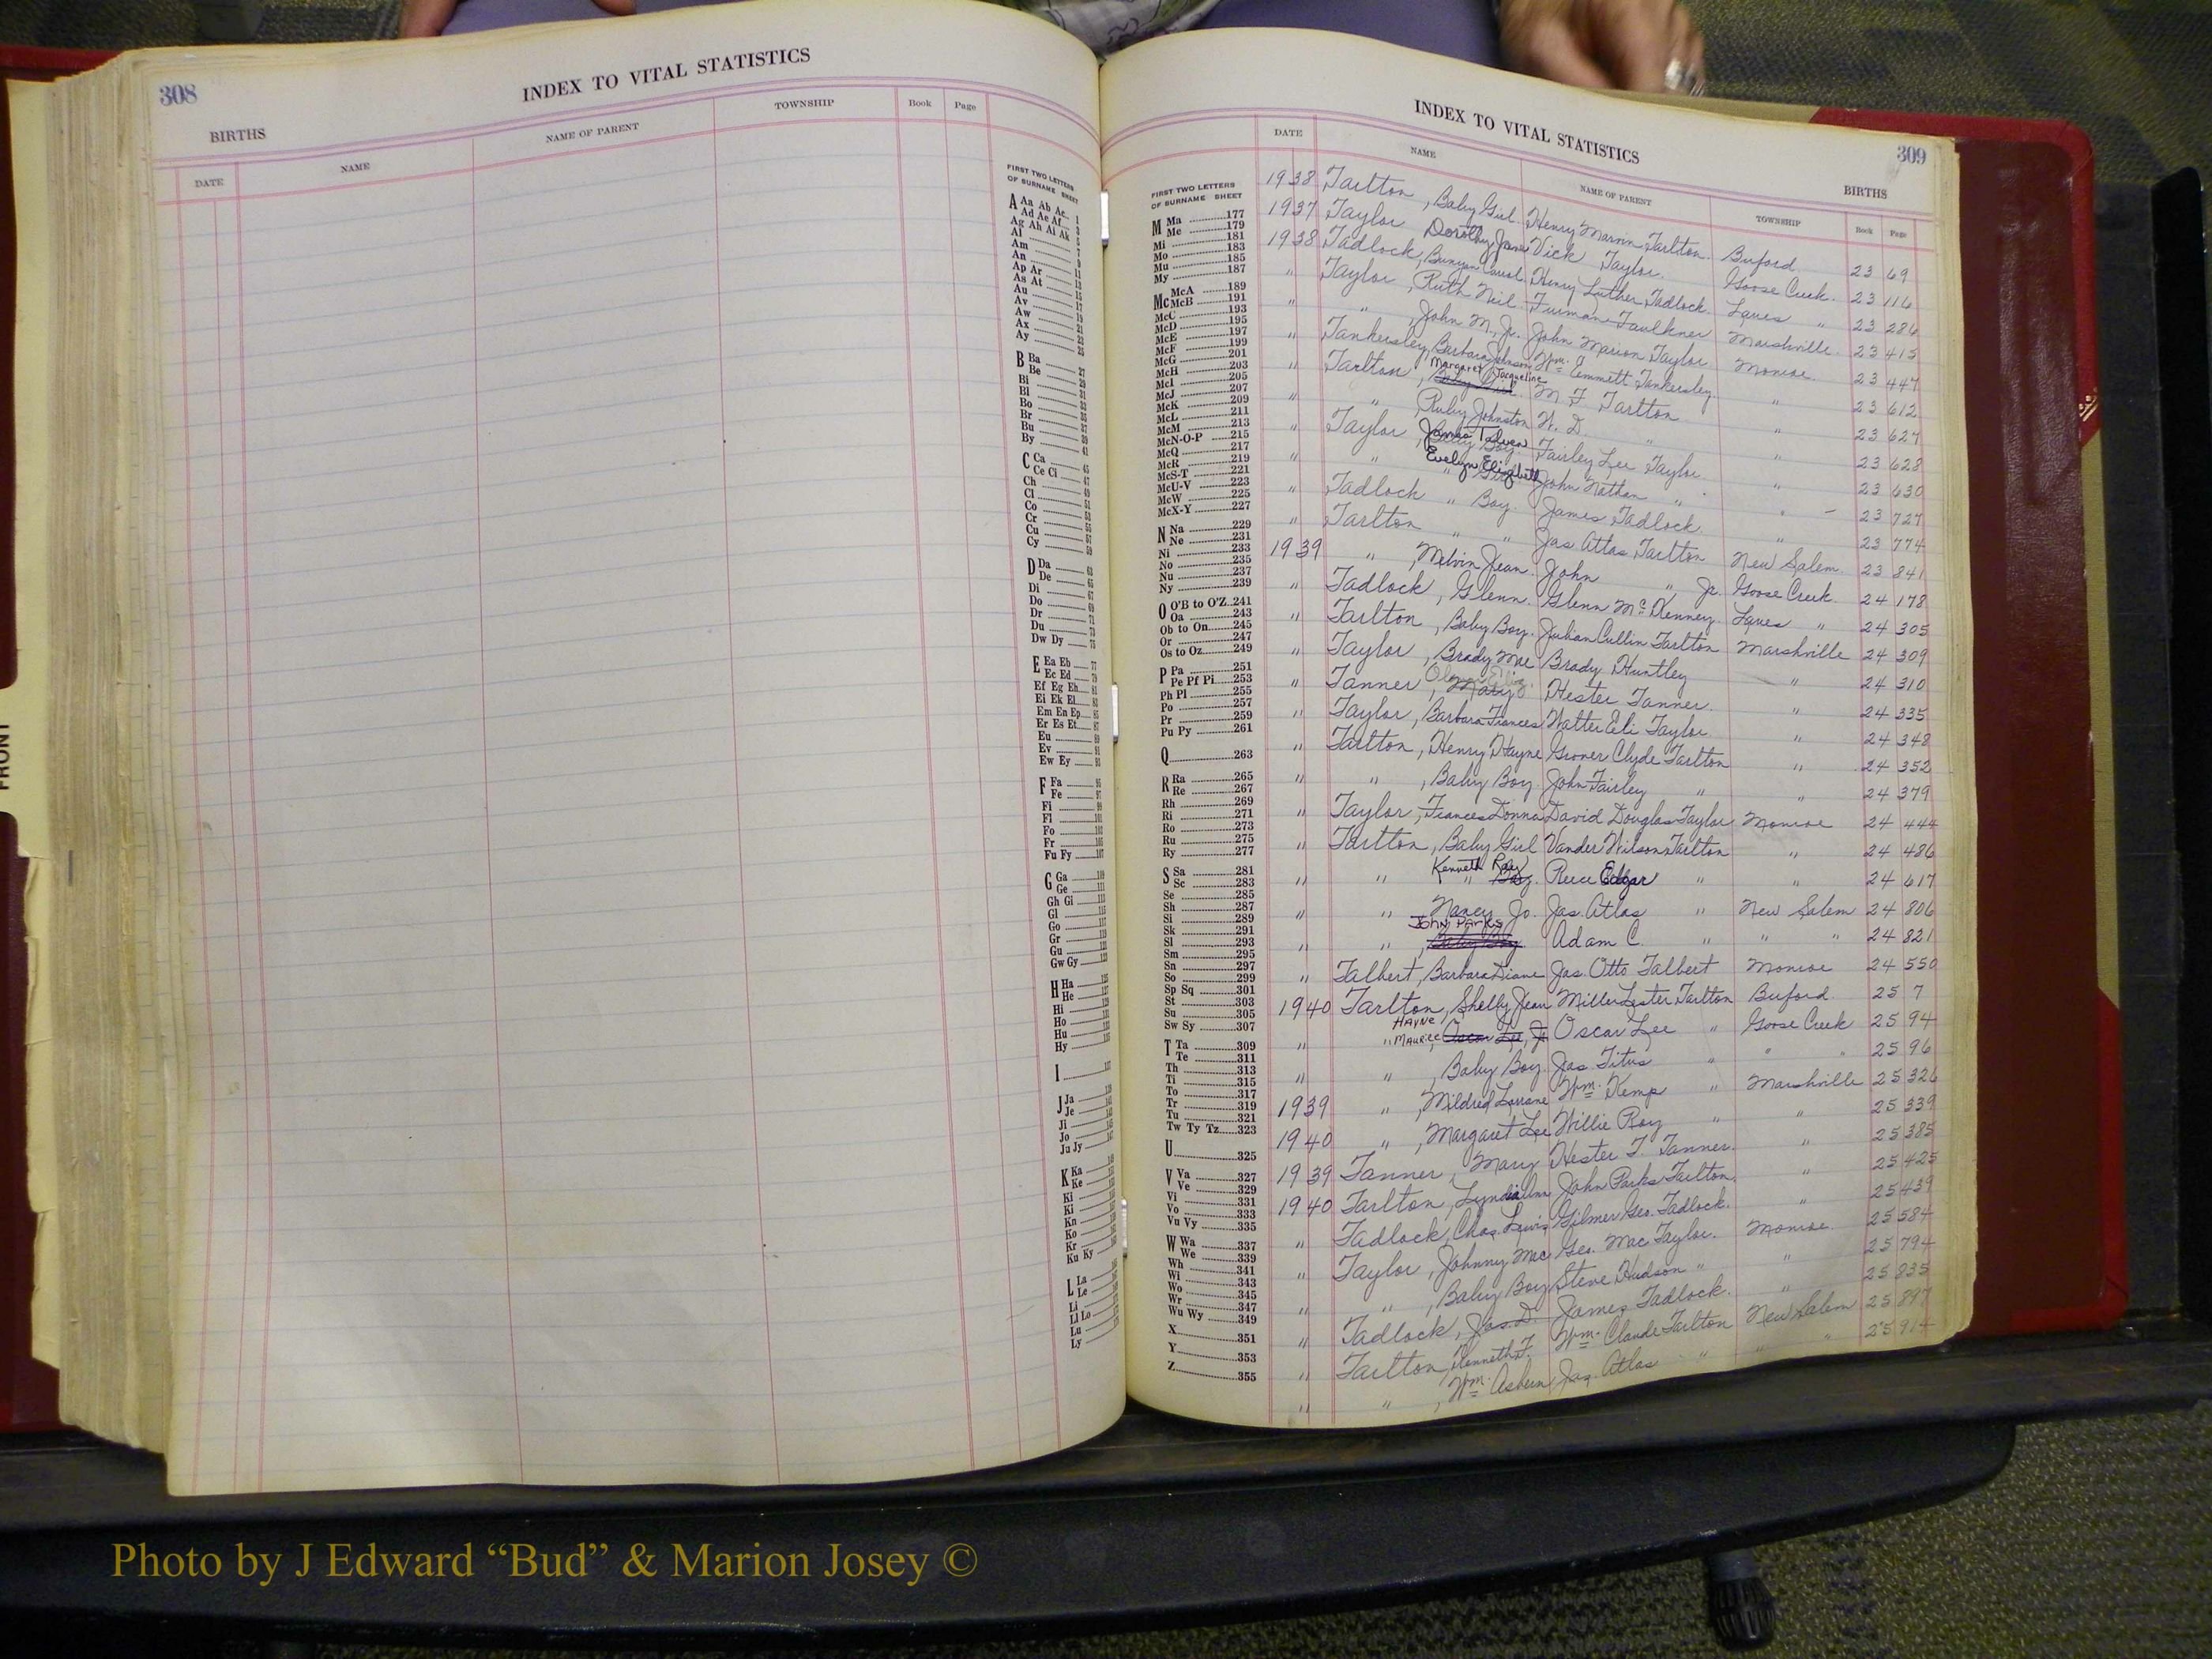 308
INDEX TO VITAL STATISTICS
BIRTHS
DATE NAME NAME OF PARENT TOWNSHIP Book Page
FIRST TWO LETTERS
OF SURNAME SHEET
A Aa Ab Ac 1
Ad Ae Af
Ag Ah Ai Ak
Al
Am
An
Ap Ar
As At
Au
Av
Aw
Ax
Ay
B Ba
Be
Bi
Bl
Bo
Br
Bu
By
C Ca
Ce Ci
Ch
Cl
Co
Cr
Cu
Cy
D Da
De
Di
Do
Dr
Du
Dw Dy
E Ea Eb
Ec Ed
Ef Eg Eh
Ei Ek El
Em En Ep
Er Es Et
Eu
Ev
Ew Ey
F Fa
Fe
Fi
Fl
Fo
Fr
Fu Fy
G Ga
Ge
Gh Gi
Gl
Go
Gr
Gu
Gw Gy
H Ha
He
Hi
Ho
Hu
Hy
I
J Ja
Je
Ji
Jo
Ju Jy
K Ka
Ke
Ki
Kn
Ko
Kr
Ku Ky
L La
Le
Li
Ll Lo
Lu
Ly
INDEX TO VITAL STATISTICS
309
BIRTHS
DATE NAME NAME OF PARENT TOWNSHIP Book Page
FIRST TWO LETTERS
OF SURNAME SHEET
M Ma 177
Me 179
Mi 181
Mo 183
Mu 185
My 187
Mc McA 189
McB 191
McC 193
McD 195
McE 197
McF 199
McG 201
McH 203
McI 205
McJ 207
McK 209
McL 211
McM 213
McN-O-P 215
McQ 217
McR 219
McS-T 221
McU-V 223
McW 225
McX-Y 227
N Na 229
Ne 231
Ni 233
No 235
Nu 237
Ny 239
O O'B to O'Z 241
Oa 243
Ob to On 245
Or 247
Os to Oz 249
P Pa 251
Pe Pf Pi 253
Ph Pl 255
Po 257
Pr 259
Pu Py 261
Q 263
R Ra 265
Re 267
Rh 269
Ri 271
Ro 273
Ru 275
Ry 277
S Sa 281
Sc 283
Se 285
Sh 287
Si 289
Sk 291
Sl 293
Sm 295
Sn 297
So 299
Sp Sq 301
St 303
Su 305
Sw Sy 307
T Ta 309
Te 311
Th 313
Ti 315
To 317
Tr 319
Tu 321
Tw Ty Tz 323
U 325
V Va 327
Ve 329
Vi 331
Vo 333
Vu Vy 335
W Wa 337
We 339
Wh 341
Wi 343
Wo 345
Wr 347
Wu Wy 349
X 351
Y 353
Z 355
1938 Tarlton, Baby Girl Henry Marvin Tarlton Buford 23 69
1937 Taylor Dorothy Jane Vick Taylor Goose Creek 23 116
1938 Tadlock, Bunyon Carrol Henry Luther Tadlock Lanes " 23 286
" Taylor, Ruth Neil Furman Faulkner Marshville 23 415
" " , John M. Jr. John Marion Taylor Monroe 23 447
" Tankersley, Barbara Johnson Wm. Emmett Tankersley " 23 612
" Tarlton, Baby Girl Margaret Jacqueline M F Tarlton " 23 627
" " , Ruby Johnston W. D. " " 23 628
" Taylor, Baby Boy James Fairley Lee Taylor " 23 630
" " " Girl Evelyn Elizabeth John Nathan " " 23 727
" Tadlock " Boy James Tadlock " 23 774
" Tarlton " " Jas Atlas Tarlton New Salem 23 841
1939 " , Melvin Jean John " Jr. Goose Creek 24 178
" Tadlock, Glenn Glenn McKenney Lanes " 24 305
" Tarlton, Baby Boy Julian Cullin Tarlton Marshville 24 309
" Taylor, Brady Mae Brady Huntley " 24 310
" Tanner, Mary Hester Tanner " 24 335
" Taylor, Barbara Frances Walter Eli Taylor " 24 348
" Tarlton, Henry Hayne Grover Clyde Tarlton " 24 352
" " , Baby Boy John Fairley " " 24 379
" Taylor, Frances Donna David Douglas Taylor Monroe 24 444
" Tarlton, Baby Girl Vander Wilson Tarlton " 24 486
" " " Boy Kenneth Ray Reece Edgar " " 24 617
" " Nancy Jo. Jas. Atlas " New Salem 24 806
" " , Baby Boy John Parks Adam C. " " " 24 821
" Talbert, Barbara Diane Jas. Otto Talbert Monroe 24 550
1940 Tarlton, Shelby Jean Miller Lester Tarlton Buford 25 7
" " Maurice Hayne, Oscar Lee, Jr. Oscar Lee " Goose Creek 25 94
" " , Baby Boy Jas. Titus " " " 25 96
1939 " , Mildred Lorrane Wm. Kemp " Marshville 25 326
1940 " , Margaret Lee Willie Roy " " 25 339
1939 Tanner, Mary Hester T. Tanner " 25 385
1940 Tarlton, Lynda Ann John Parks Tarlton " 25 425
" Tadlock, Chas. Lewis Gilmer Geo. Tadlock " 25 439
" Taylor, Johnny Mac Geo. Mac Taylor Monroe 25 584
" " , Baby Boy Steve Hudson " " 25 794
" Tadlock, Jas. D. James Tadlock " 25 835
" Tarlton, Kenneth F. Wm. Claude Tarlton New Salem 25 897
" " , Wm. Asburn Jas. Atlas " " " 25 914
FRONT
Photo by J Edward “Bud” & Marion Josey ©